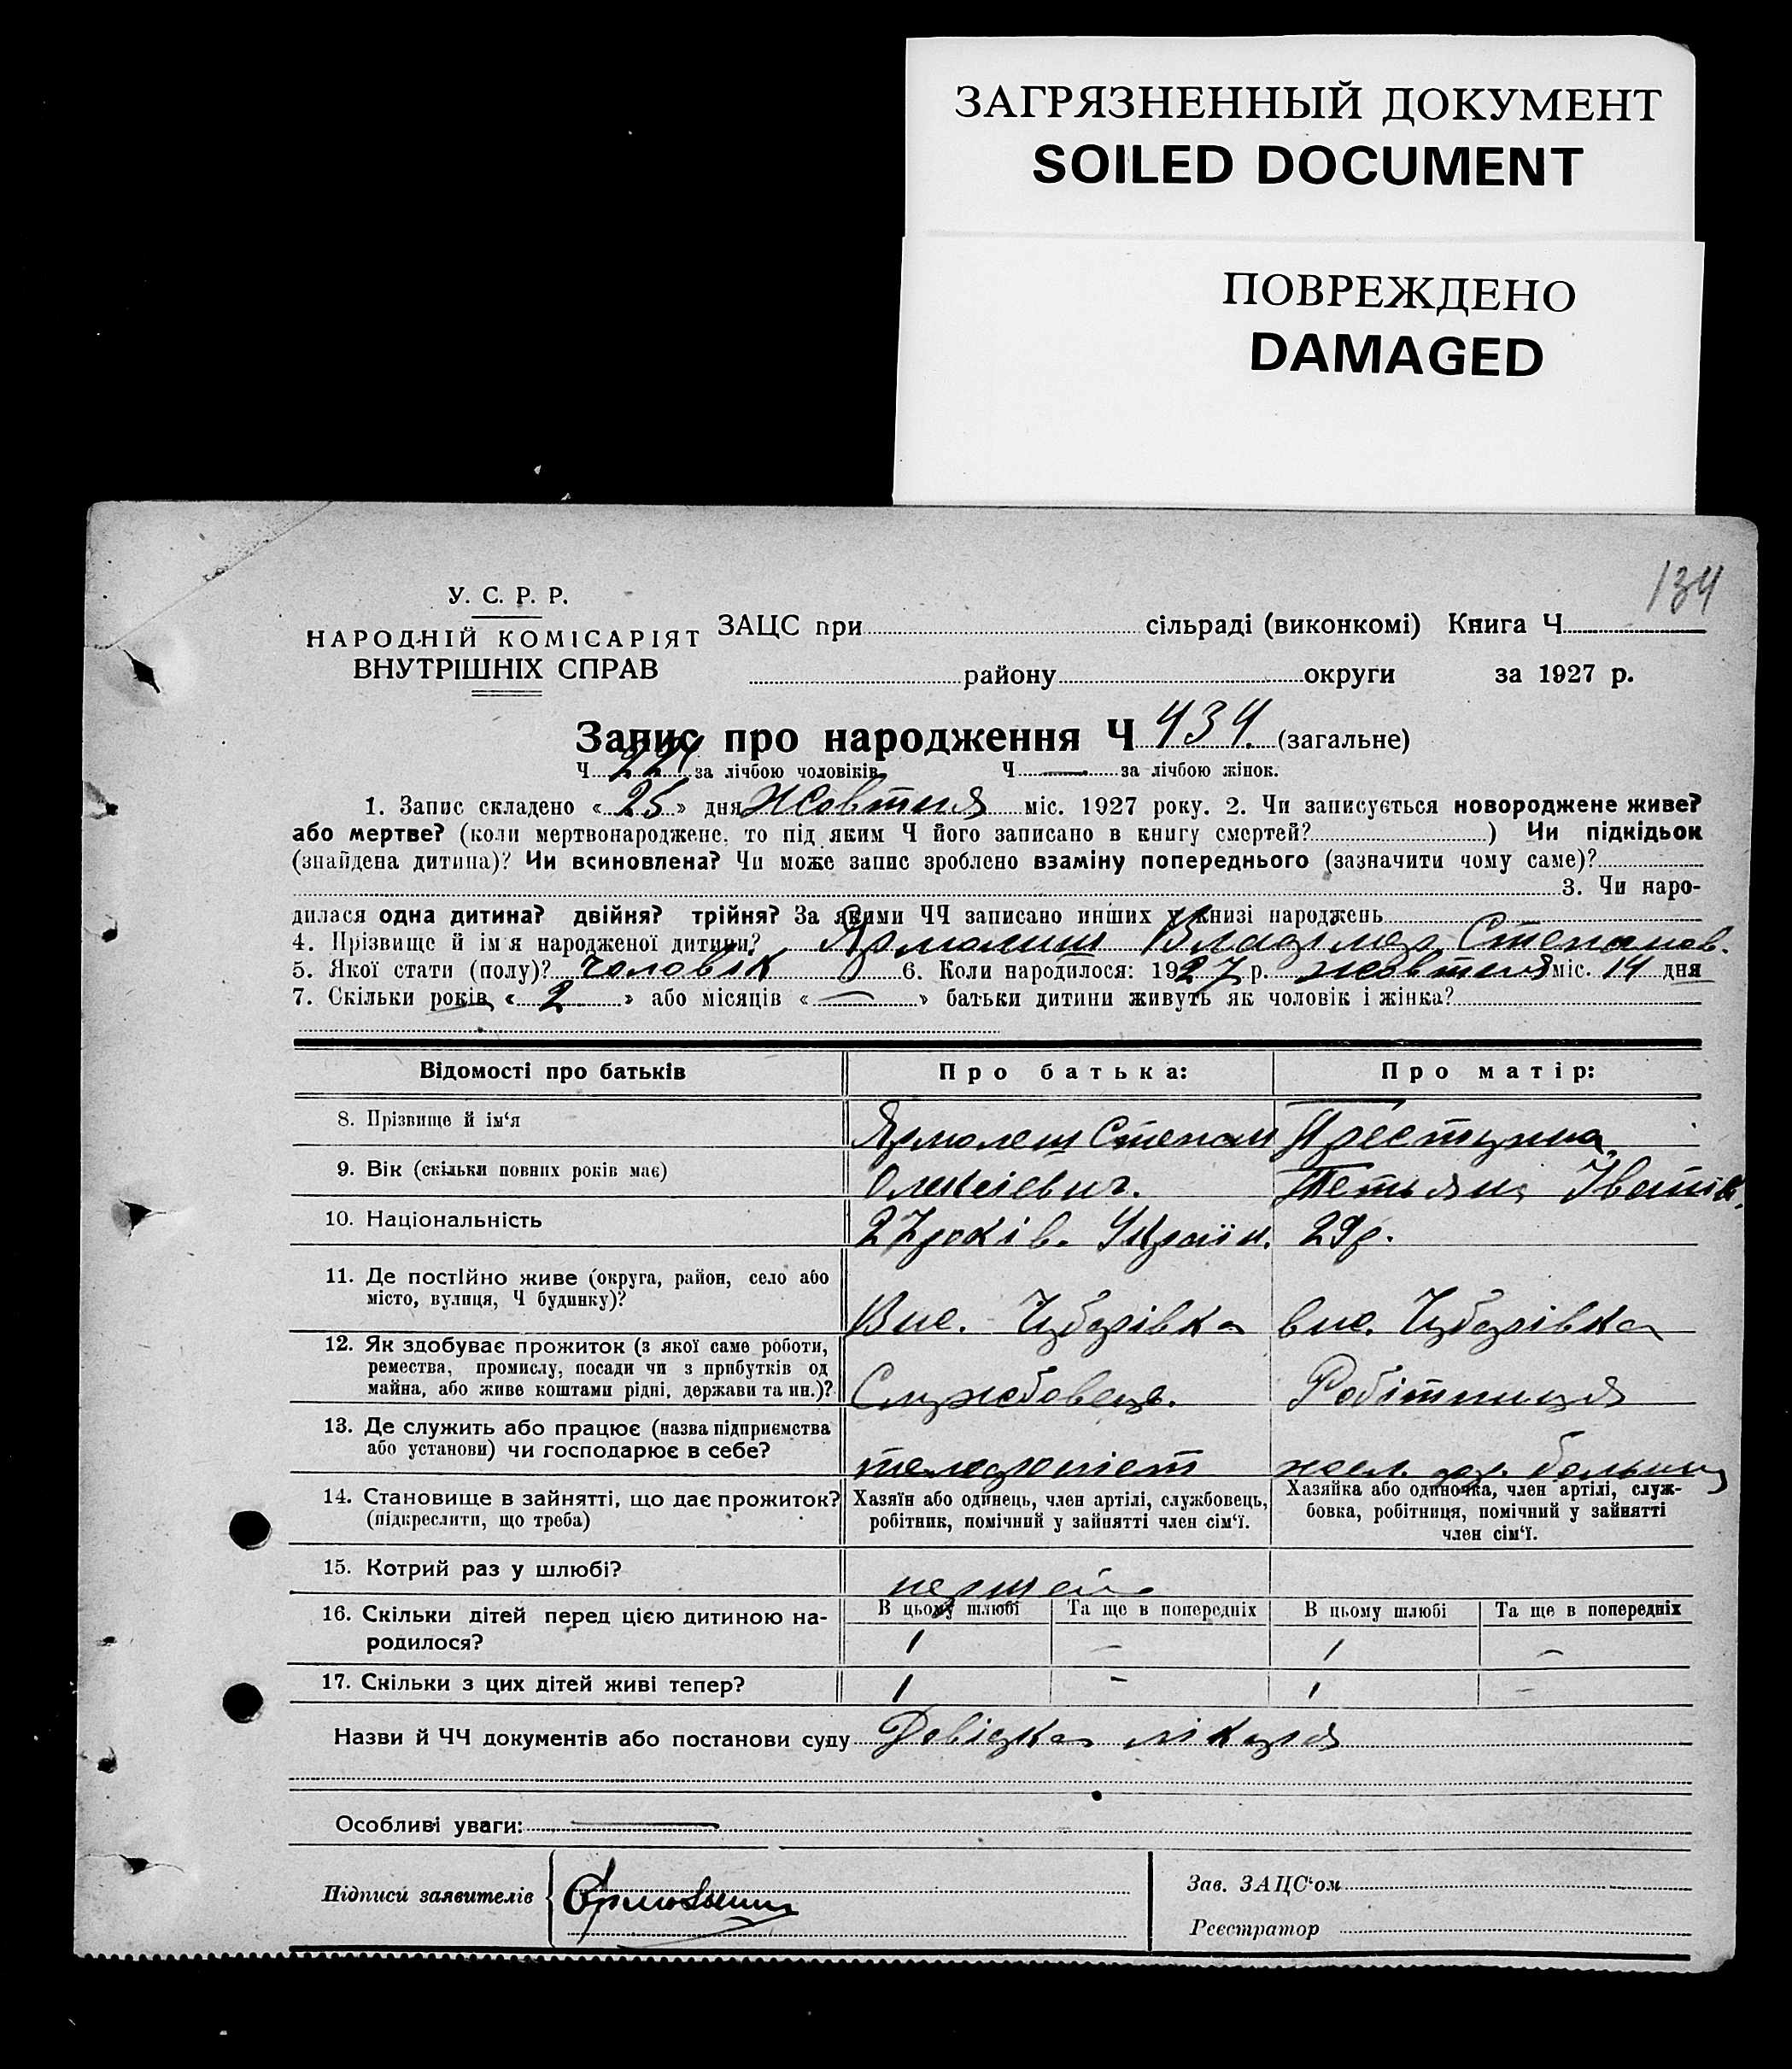 ЗАГРЯЗНЕННЫЙ ДОКУМЕНТ
SOILED DOCUMENT
ПОВРЕЖДЕНО
DAMAGED
134
У. С. Р. Р.
НАРОДНІЙ КОМІСАРІЯТ
ВНУТРІШНІХ СПРАВ
ЗАЦС при сільраді (виконкомі) Книга Ч.
району округи за 1927 р.
Запис про народження Ч 434. (загальне)
Ч. 224 за лічбою чоловіків Ч. — за лічбою жінок.
1. Запис складено « 25 » дня Жовтня міс. 1927 року. 2. Чи записується новороджене живе?
або мертве? (коли мертвонароджене, то під яким Ч його записано в книгу смертей? ) Чи підкідьок
(знайдена дитина)? Чи всиновлена? Чи може запис зроблено взаміну попереднього (зазначити чому саме)?
3. Чи наро-
дилася одна дитина? двійня? трійня? За якими ЧЧ записано инших у книзі народжень
4. Прізвище й ім'я народженої дитини? Владімер Степанов.
5. Якої стати (полу)? чоловік 6. Коли народилося: 1927 р. жовтня міс. 14 дня
7. Скільки років « 2 » або місяців « — » батьки дитини живуть як чоловік і жінка?
Відомості про батьків Про батька: Про матір:
8. Прізвище й ім'я Степан
9. Вік (скільки повних років має) Олексієвич. Тетьяна Іванів.
10. Національність 27 років. Україн. 29 р.
11. Де постійно живе (округа, район, село або
місто, вулиця, Ч будинку)?
Вис. Чубарівка вис. Чубарівка
12. Як здобуває прожиток (з якої саме роботи,
ремества, промислу, посади чи з прибутків од
майна, або живе коштами рідні, держави та ин.)?
Службовець. Робітниця
13. Де служить або працює (назва підприємства
або установи) чи господарює в себе?
телеграфіст
14. Становище в зайнятті, що дає прожиток?
(підкреслити, що треба)
Хазяїн або одинець, член артілі, службовець,
робітник, помічний у зайнятті член сім'ї.
Хазяйка або одиночка, член артілі, служ-
бовка, робітниця, помічний у зайнятті
член сім'ї.
15. Котрий раз у шлюбі? перший
16. Скільки дітей перед цією дитиною на-
родилося?
В цьому шлюбі Та ще в попередніх В цьому шлюбі Та ще в попередніх
1 — 1 —
17. Скільки з цих дітей живі тепер? 1 — 1 —
Назви й ЧЧ документів або постанови суду Довідка лікаря
Особливі уваги: —
Підписи заявителів
Зав. ЗАЦС'ом
Реєстратор